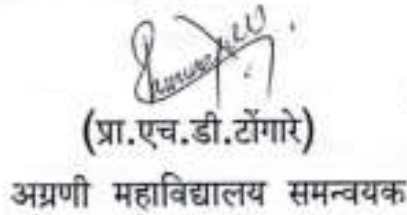 (प्रा.एच.डी.टोंगारे)
अग्रणी महाविद्यालय समन्वयक